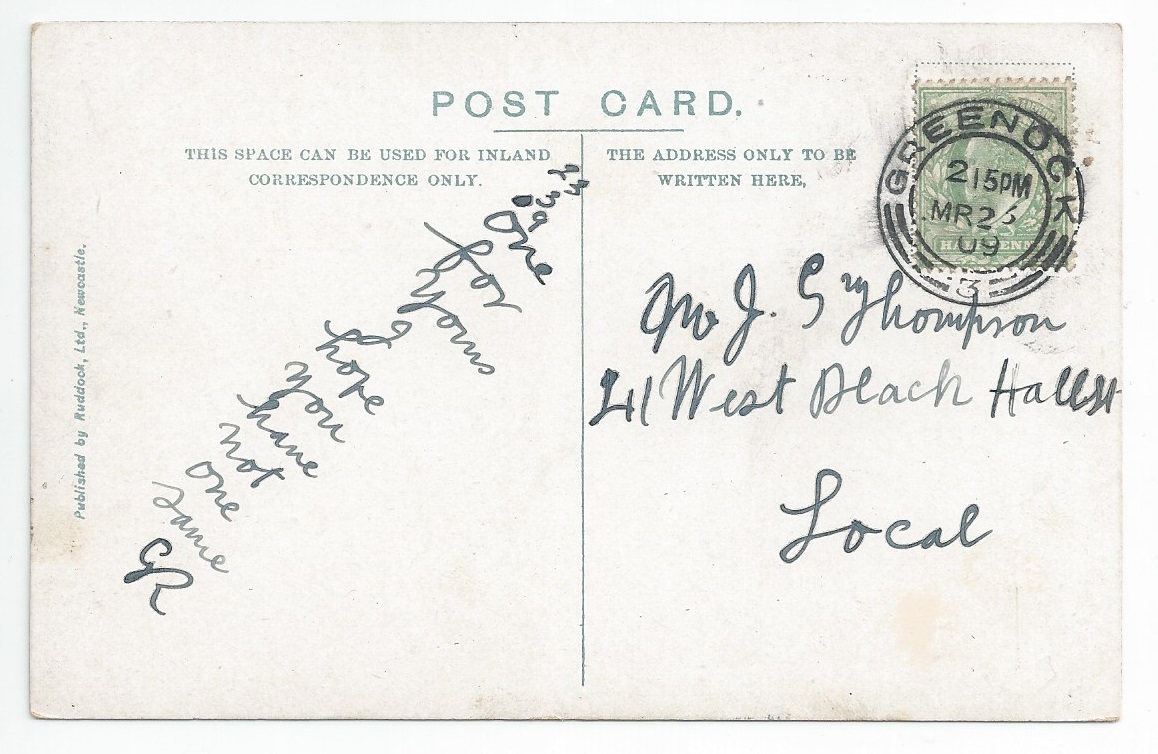 POST CARD.
THIS SPACE CAN BE USED FOR INLAND
CORRESPONDENCE ONLY.
THE ADDRESS ONLY TO BE
WRITTEN HERE,
GREENOCK
215PM
MR 2
09
3
HALFPENNY
One
for
Yours
I
hope
you
have
not
one
same
GR
Mr J. G Thompson
41 West Blackhall St
Local
Published by Ruddock, Ltd., Newcastle.